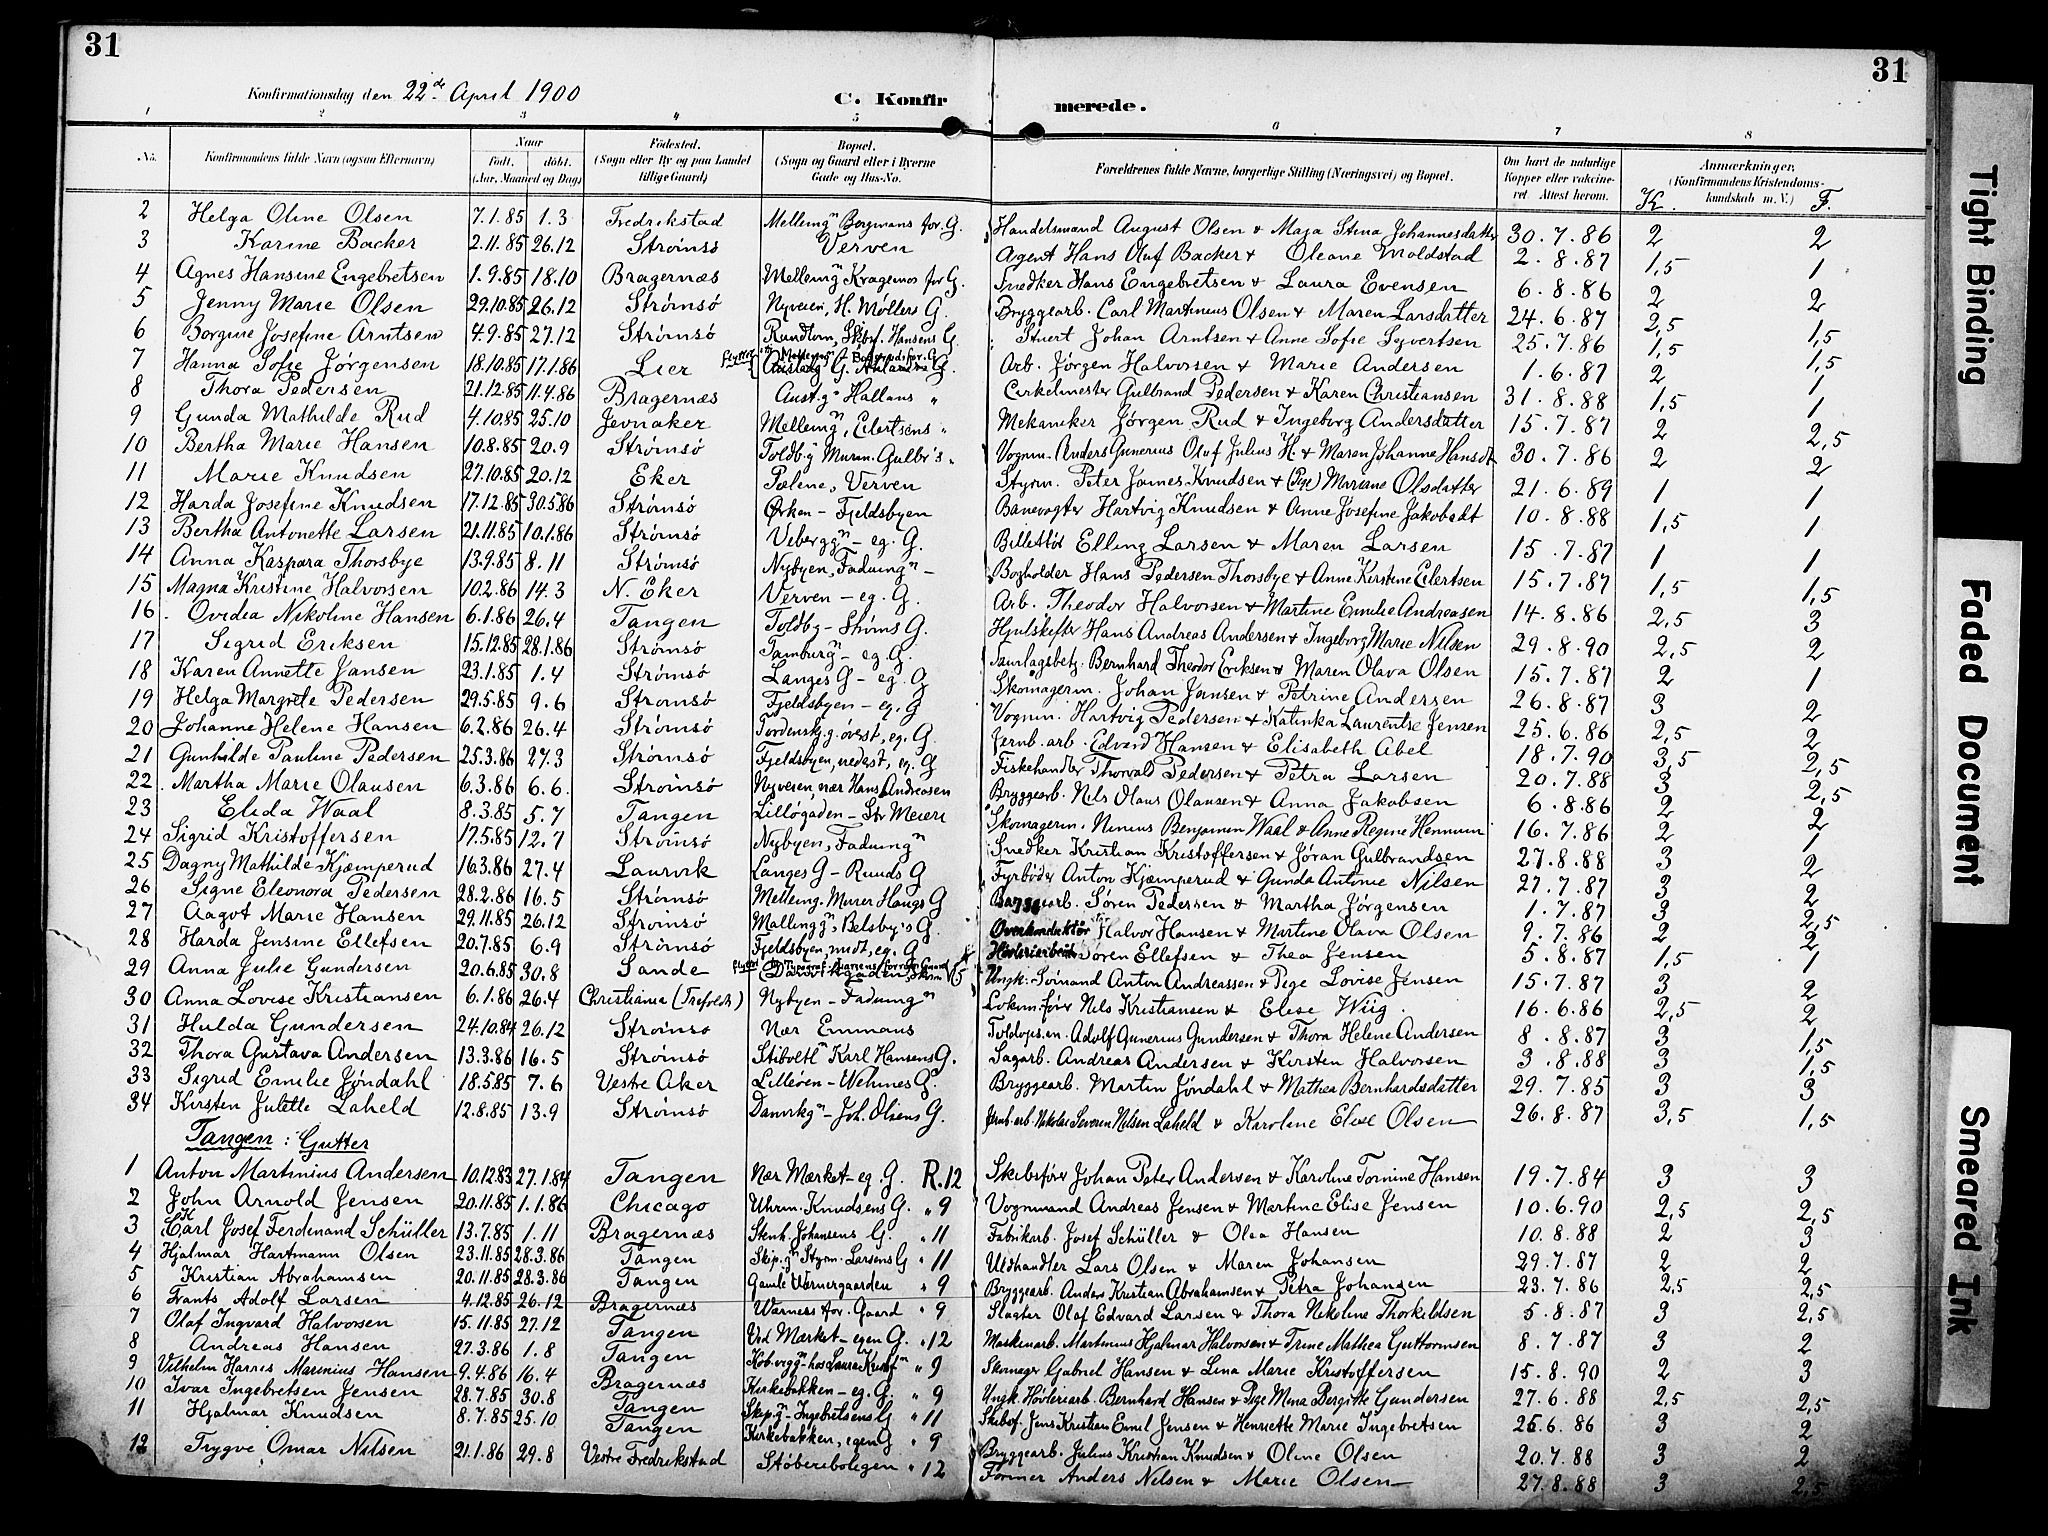 31
31
Konfirmationsdag den 22de April 1900
C. Konfirmerede.
1 2 3 4 5 6 7 8
No. Konfirmandens fulde Navn (ogsaa Efternavn) Naar født. døbt. (Aar, Maaned og Dag) Fødested. (Sogn eller By og paa Landet tillige Gaard) Bopæl. (Sogn og Gaard eller i Byerne Gade og Hus-No. Forældrenes fulde Navne, borgerlige Stilling (Næringsvei) og Bopæl. Om havt de naturlige Kopper eller vaccineret. Attest herom. Anmærkninger, (Konfirmandens Kristendomskundskab m. V.) K. F.
2 Helga Oline Olsen 7.1.85 1.3 Fredrikstad Mellemgn Borgmans for. G. Handelsmand August Olsen & Maja Stina Johannesdatter 30.7.86 2 2
3 Karine Backer 2.11.85 26.12 Strømsö Verven Agent Hans Oluf Backer & Oleane Moldstad 2.8.87 1,5 1
4 Agnes Hansine Engebretsen 1.9.85 18.10 Bragernæs Mellemgn Kragemos for G. Snedker Hans Engebretsen & Laura Evensen 6.8.86 2 2
5 Jenny Marie Olsen 29.10.85 26.12 Strømsö Nyveien, H. Møllers G. Bryggearb. Carl Martinius Olsen & Maren Larsdatter 24.6.87 2,5 1,5
6 Borgine Josefine Arntsen 4.9.85 27.12 Strømsö Rundtom, Skbf. Hansens G. Stuert Johan Arntsen & Anne Sofie Syvertsen 25.7.86 1,5 1,5
7 Hanna Sofie Jørgensen 18.10.85 17.1.86 Lier flyttet Arb. Jørgen Halvorsen & Marie Andersen 1.6.87 2 1
8 Thora Pedersen 21.12.85 11.4.86 Bragernæs Aust.gn Hallans " Cirkelmester Gulbrand Pedersen & Karen Christiansen 31.8.88 1,5 1
9 Gunda Mathilde Rud 4.10.85 25.10 Jevnaker Mellemgn, Eilertsens " Mekaniker Jørgen Rud & Ingeborg Andersdatter 15.7.87 2 2,5
10 Bertha Marie Hansen 10.8.85 20.9 Strømsö Toldb.g Murm. Gulbr's " Vognm. Anders Gunerius Oluf Julius H. & Maren Johanne Hansdt 30.7.86 2 2
11 Marie Knudsen 27.10.85 20.12 Eker Pælene, Verven Styrm. Peter James Knudsen & (Pge) Mariane Olsdatter 21.6.89 1 1
12 Harda Josefine Knudsen 17.12.85 30.5.86 Strømsö Ørken - Fjeldsbyen Banevogter Hartvig Knudsen & Anne Josefine Jakobsdt 10.8.88 1,5 1
13 Bertha Antonette Larsen 21.11.85 10.1.86 Strømsö Veberggn - eg. G. Billettör Elling Larsen & Maren Larsen 15.7.87 1 1
14 Anna Kaspara Thorsbye 13.9.85 8.11 Strømsö Nybyen, Fadumgn - Bogholder Hans Pedersen Thorsbye & Anne Kirstine Eilertsen 15.7.87 1,5 1,5
15 Magna Kristine Halvorsen 10.2.86 14.3 N. Eker Verven - eg. G. Arb. Theodor Halvorsen & Martine Emilie Andreasen 14.8.86 2,5 3
16 Ovidea Nikoline Hansen 6.1.86 26.4 Tangen Toldbg - Støms G. Hjulskifter Hans Andreas Andersen & Ingeborg Marie Nilsen 29.8.90 2,5 2
17 Sigrid Eriksen 15.12.85 28.1.86 Strømsö Tamburgn - eg. G. Samlagsbetj. Bernhard Theodor Eriksen & Maren Olava Olsen 15.7.87 2 1
18 Karen Annette Jansen 23.1.85 1.4 Strømsö Langes G - eg. G Skomagerm. Johan Jansen & Petrine Andersen 26.8.87 3 2
19 Helga Margrete Pedersen 29.5.85 9.6 Strömsö Fjeldsbyen - eg. G Vognm. Hartvig Pedersen & Katinka Laurentse Jensen 25.6.86 2,5 2
20 Johanne Helene Hansen 6.2.86 26.4 Strømsö Tordenskg. øverst, eg. G. Jernb. arb. Edvard Hansen & Elisabeth Abel 18.7.90 3,5 2,5
21 Gunhilde Pauline Pedersen 25.3.86 27.3 Strømsö Fjeldsbyen, nederst, eg. G Fiskehandler Thorvald Pedersen & Petra Larsen 20.7.88 3 2,5
22 Martha Marie Olausen 6.3.86 6.6. Strømsö Nyveien nær Hans Andreasen Bryggearb. Nils Olaus Olausen & Anna Jakobsen 6.8.86 2 2
23 Elida Waal 8.3.85 5.7 Tangen Lilløgaden - Str Meieri Skomagerm. Ninius Benjamin Waal & Anne Regine Hennum 16.7.86 2 1
24 Sigrid Kristoffersen 17.5.85 12.7 Strømsö Nybyen, Fadumgn Snedker Kristian Kristoffersen & Jöran Gulbrandsen 27.8.88 3 2
25 Dagny Mathilde Kjæmperud 16.3.86 27.4 Laurvik Langes G - Ruuds G Fyrbøder Anton Kjæmperud & Gunda Antonie Nilsen 27.7.87 3 2
26 Signe Eleonora Pedersen 28.2.86 16.5 Strømsö Melleng. Murer Haugs G Søren Pedersen & Martha Jørgensen 1.7.87 3 2,5
27 Aagot Marie Hansen 29.11.85 26.12 Strømsö Mallinggn, Belsby's G. Overkonduktør Halvor Hansen & Martine Olava Olsen 9.7.86 2 2
28 Harda Jensine Ellefsen 20.7.85 6.9 Strømsö Fjeldsbyen, midt, eg. G Høvleriarbeid. Søren Ellefsen & Thea Jensen 5.8.87 1,5 1
29 Anna Julie Gundersen 20.6.85 30.8 Sande flyttet Ungk. Sørnand Anton Andreassen & Pige Lovise Jensen 15.7.87 3 2
30 Anna Lovise Kristiansen 6.1.86 26.4 Christiania (Trefoldh) Nybyen - Fadumgn Lokom.fører Nils Kristiansen & Elise Wiig. 16.6.86 2,5 2
31 Hulda Gundersen 24.10.84 26.12 Strømsö Nær Emmaus Toldops.m. Adolf Gunerius Gundersen & Thora Helene Andersen 8.8.87 3 1,5
32 Thora Gustava Andersen 13.3.86 16.5 Strømsö Stiboltgn Karl Hansens G. Sagarb. Andreas Andersen & Kirsten Halvorsen 3.8.88 3 1,5
33 Sigrid Emilie Jøndahl 18.5.85 7.6 Vestre Aker Lilleøen - Wehmes G. Bryggearb. Martin Jøndahl & Mathea Bernhardsdatter 29.7.85 3 3
34 Kirsten Julette Laheld 12.8.85 13.9 Strømsö Damvkgn - Joh. Oliens G. Jernb. arb. Nikolai Severin Nilsen Laheld & Karoline Elise Olsen 26.8.87 3,5 1,5
Tangen: Gutter
1 Anton Martinius Andersen 10.12.83 27.1.84 Tangen Nær Mærket - eg. G. R. 12 Skibsfører Johan Peter Andersen & Karoline Tomine Hansen 19.7.84 3 3
2 John Arnold Jensen 20.11.85 1.1.86 Chicago Uhrm. Knudsens G. " 9 Vognmand Andreas Jensen & Martine Elise Jensen 10.6.90 2,5 2,5
3 Carl Josef Ferdinand Schüller 13.7.85 1.11 Bragernæs Stenh. Johansens G. " 11 Fabrikarb. Josef Schüller & Olea Hansen 10.8.88 2 3
4 Hjalmar Hartmann Olsen 23.11.85 28.3.86 Tangen Skip.gn Styrm. Larsens G " 11 Vedhandler Lars Olsen & Maren Johansen 29.7.87 2 2
5 Kristian Abrahamsen 20.11.85 28.3.86 Tangen Gamle Værnergaarden " 9 Bryggearb. Anders Kristian Abrahamsen & Petra Johansen 23.7.86 2,5 2,5
6 Frants Adolf Larsen 4.12.85 26.12 Bragernæs Warness for. Gaard " 9 Slagter Olaf Edvard Larsen & Thora Nikoline Thorkildsen 5.8.87 3 2,5
7 Olaf Ingvard Halvorsen 15.11.85 27.12 Tangen Ved Mærket - egen G. " 12 Maskinarb. Martinius Hjalmar Halvorsen & Trine Mathea Guttormsen 8.7.87 3 2
8 Andreas Hansen 27.3.86 1.8 Tangen Kobberviggn hos Laura Kristofn " 9 Skomager Gabriel Hansen & Lina Marie Kristoffersen 15.8.90 2 3
9 Vilhelm Harris Marinius Hansen 9.4.86 16.4 Bragernæs Kirkebakken - eg. G. " 9 Ungk. Høvleriarb. Bernhard Hansen & Pige Mina Bergitte Gundersen 27.6.88 2,5 2,5
10 Ivar Ingebretsen Jensen 28.7.85 30.8 Tangen Skip.gn - Ingebretsens G " 11 Skibsf. Jens Kristian Emil Jensen & Henriette Marie Ingebretsen 25.6.86 3 2
11 Hjalmar Knudsen 8.7.85 25.10 Tangen Kirkebakken, egen G " 9 Bryggearb. Julius Kristian Knudsen & Oline Olsen 20.7.88 3 2
12 Trygve Omar Nilsen 21.1.86 29.8 Vestre Fredrikstad Støberiboligen " 12 Former Anders Nilsen & Marie Olsen 27.8.88 3 2,5
Tight Binding
Faded Document
Smeared Ink